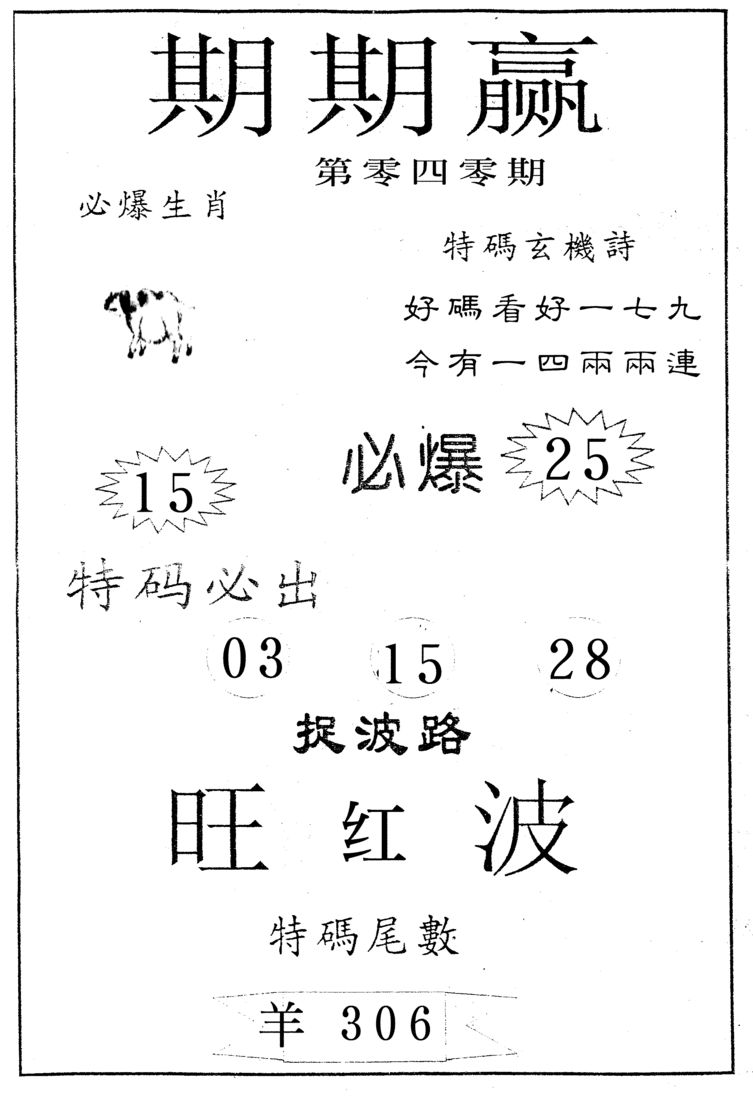 期期赢
第零四零期
必爆生肖
特碼玄機詩
好碼看好一七九
今有一四兩兩連
15
必爆 25
特码必出
03 15 28
捉波路
旺红波
特碼尾數
羊 306